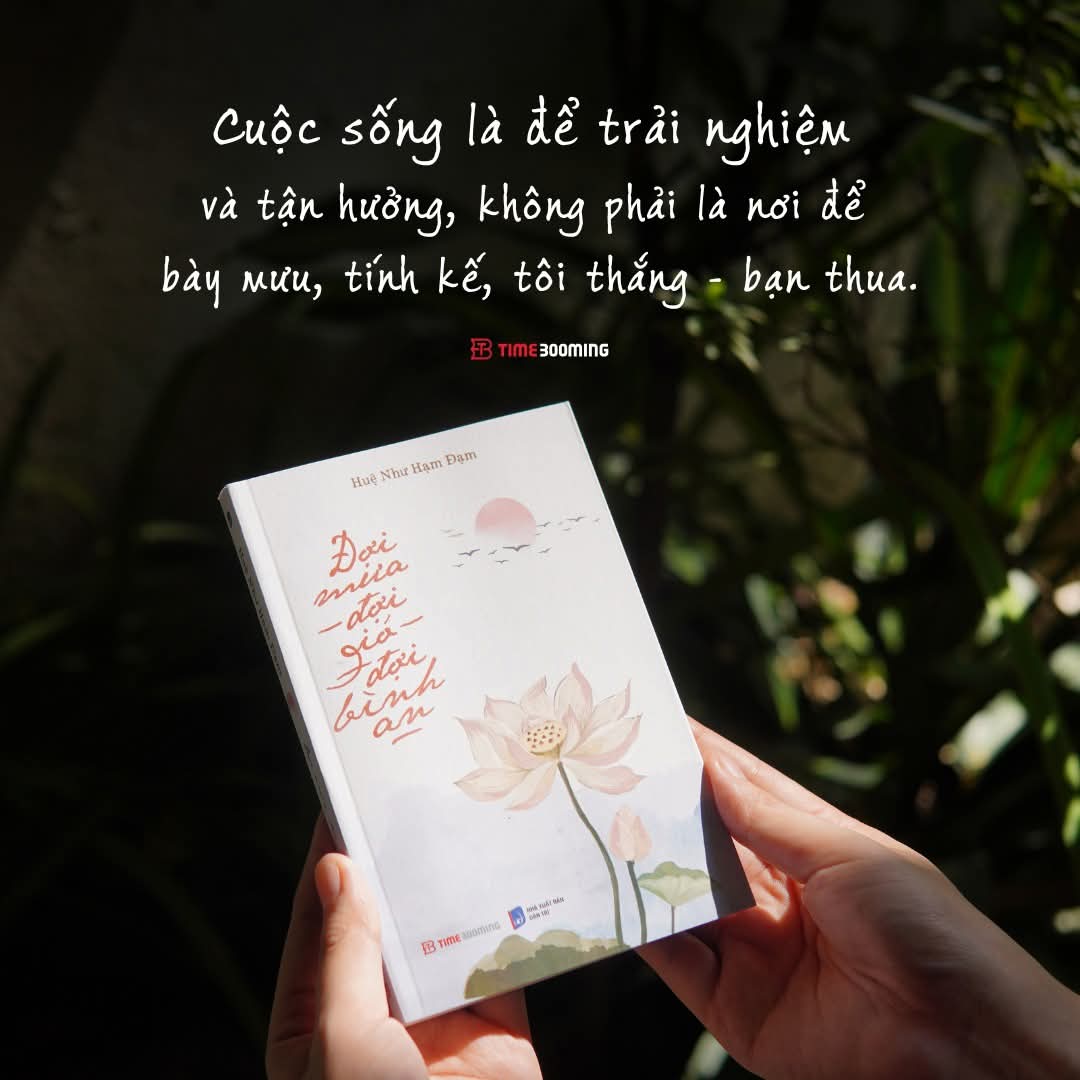 Cuộc sống là để trải nghiệm
và tận hưởng, không phải là nơi để
bày mưu, tính kế, tôi thắng - bạn thua.
TIMEBOOMING
Huệ Như Hạm Đạm
Đợi
mưa
- đợi
gió -
đợi
bình
an
TIMEBOOMING
NHÀ XUẤT BẢN
DÂN TRÍ